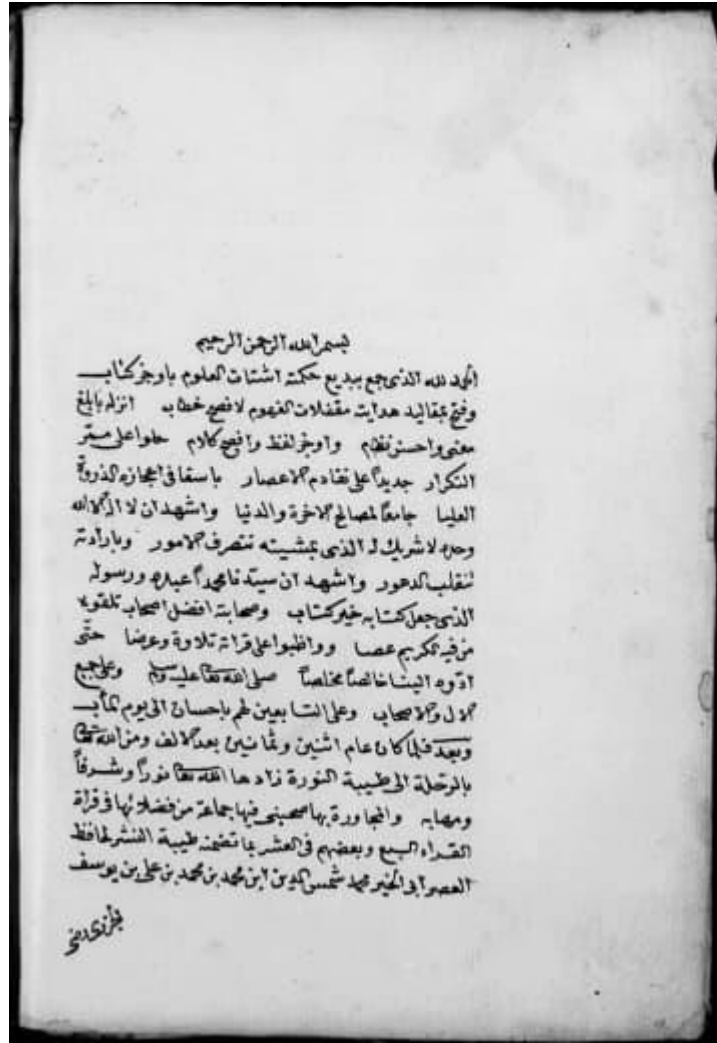 بسم الله الرحمن الرحيم
الحمد لله الذى جمع ببديع حكمته اشتات العلوم باوجز كتاب
وفتح بمقاليد هدايته مقفلات الفهوم لافصح خطاب انزله بابلغ
معنى واحسن نظام واوجز لفظ وافصح كلام حلوا على ممر
التكرار جديداً على تقادم الاعصار باسقا فى اعجازه الذروة
العليا جامعاً لمصالح الاخرة والدنيا واشهد ان لا اله الا الله
وحده لا شريك له الذى بمشيته تتصرف الامور وبارادته
تنقلب الدهور واشهد ان سيدنا محمداً عبده ورسوله
الذى جعل كتابه خير كتاب وصحابته افضل اصحاب تلقوه
من فيه الكريم غضا وواظبوا على قراته تلاوة وعرضا حتّى
ادّوه الينا خالصاً مخلصاً صلى الله تعا عليه وسلم وعلى جميع
الال والاصحاب وعلى التابعين لهم باحسان الى يوم المآب
وبعد فلما كان عام اثنين وثمانين بعد الالف ومن الله تعا
بالرحلة الى طيبة المنورة زادها الله تعا نوراً وشرفاً
ومهابه والمجاورة بها صحبنى فيها جماعة من فضلائها فى قراة
القراء السبع وبعضهم فى العشر بما تضمنه طيبة النشر لحافظ
العصر ابى الخير محمد شمس الدين ابن محمد بن محمد بن على بن يوسف
الجزرى رضى